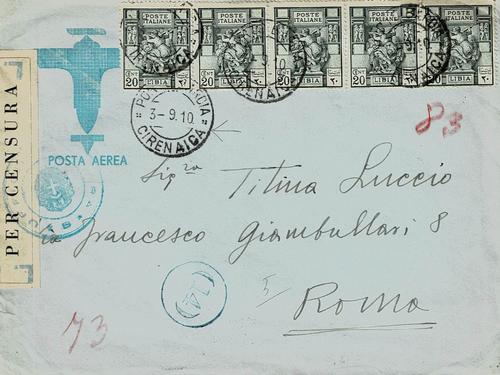 POSTE ITALIANE POSTE ITALIANE POSTE ITALIANE POSTE ITALIANE POSTE ITALIANE
CENT 20 LIBIA ٢٠ CENT 20 LIBIA ٢٠ CENT 20 LIBIA ٢٠ CENT 20 LIBIA ٢٠ CENT 20 LIBIA ٢٠
CIRENAICA
3-9.10
CIRENAICA
PER CENSURA
POSTA AEREA
83
Sig.ra Titina Luccio
Via Francesco Giambullari 8
(14)
5/
Roma
73